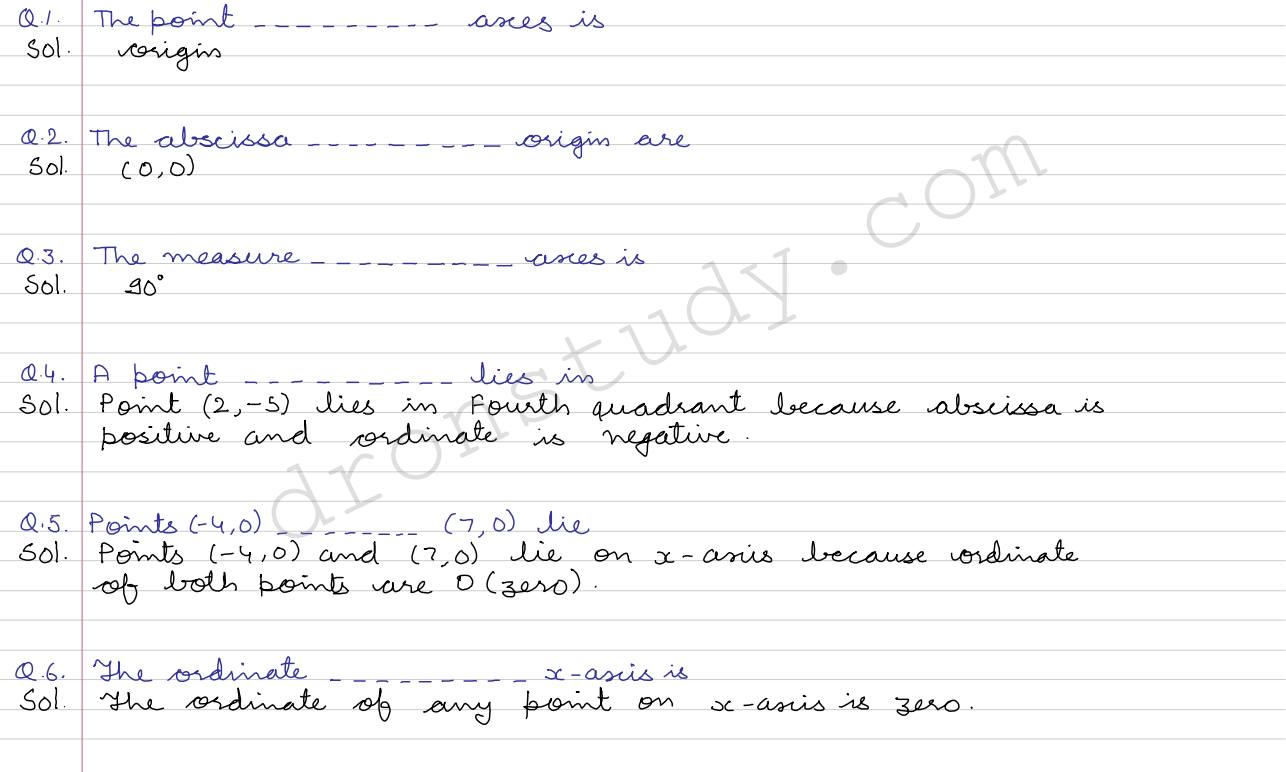 Q.1. The point --------- axes is
Sol. origin
Q.2. The abscissa --------- origin are
Sol. (0,0)
Q.3. The measure --------- axes is
Sol. 90°
Q.4. A point --------- lies in
Sol. Point (2,-5) lies in Fourth quadrant because abscissa is
positive and ordinate is negative.
Q.5. Points (-4,0) -------- (7,0) lie
Sol. Points (-4,0) and (7,0) lie on x-axis because ordinate
of both points are 0 (zero).
Q.6. The ordinate --------- x-axis is
Sol. The ordinate of any point on x-axis is zero.
dronstudy.com